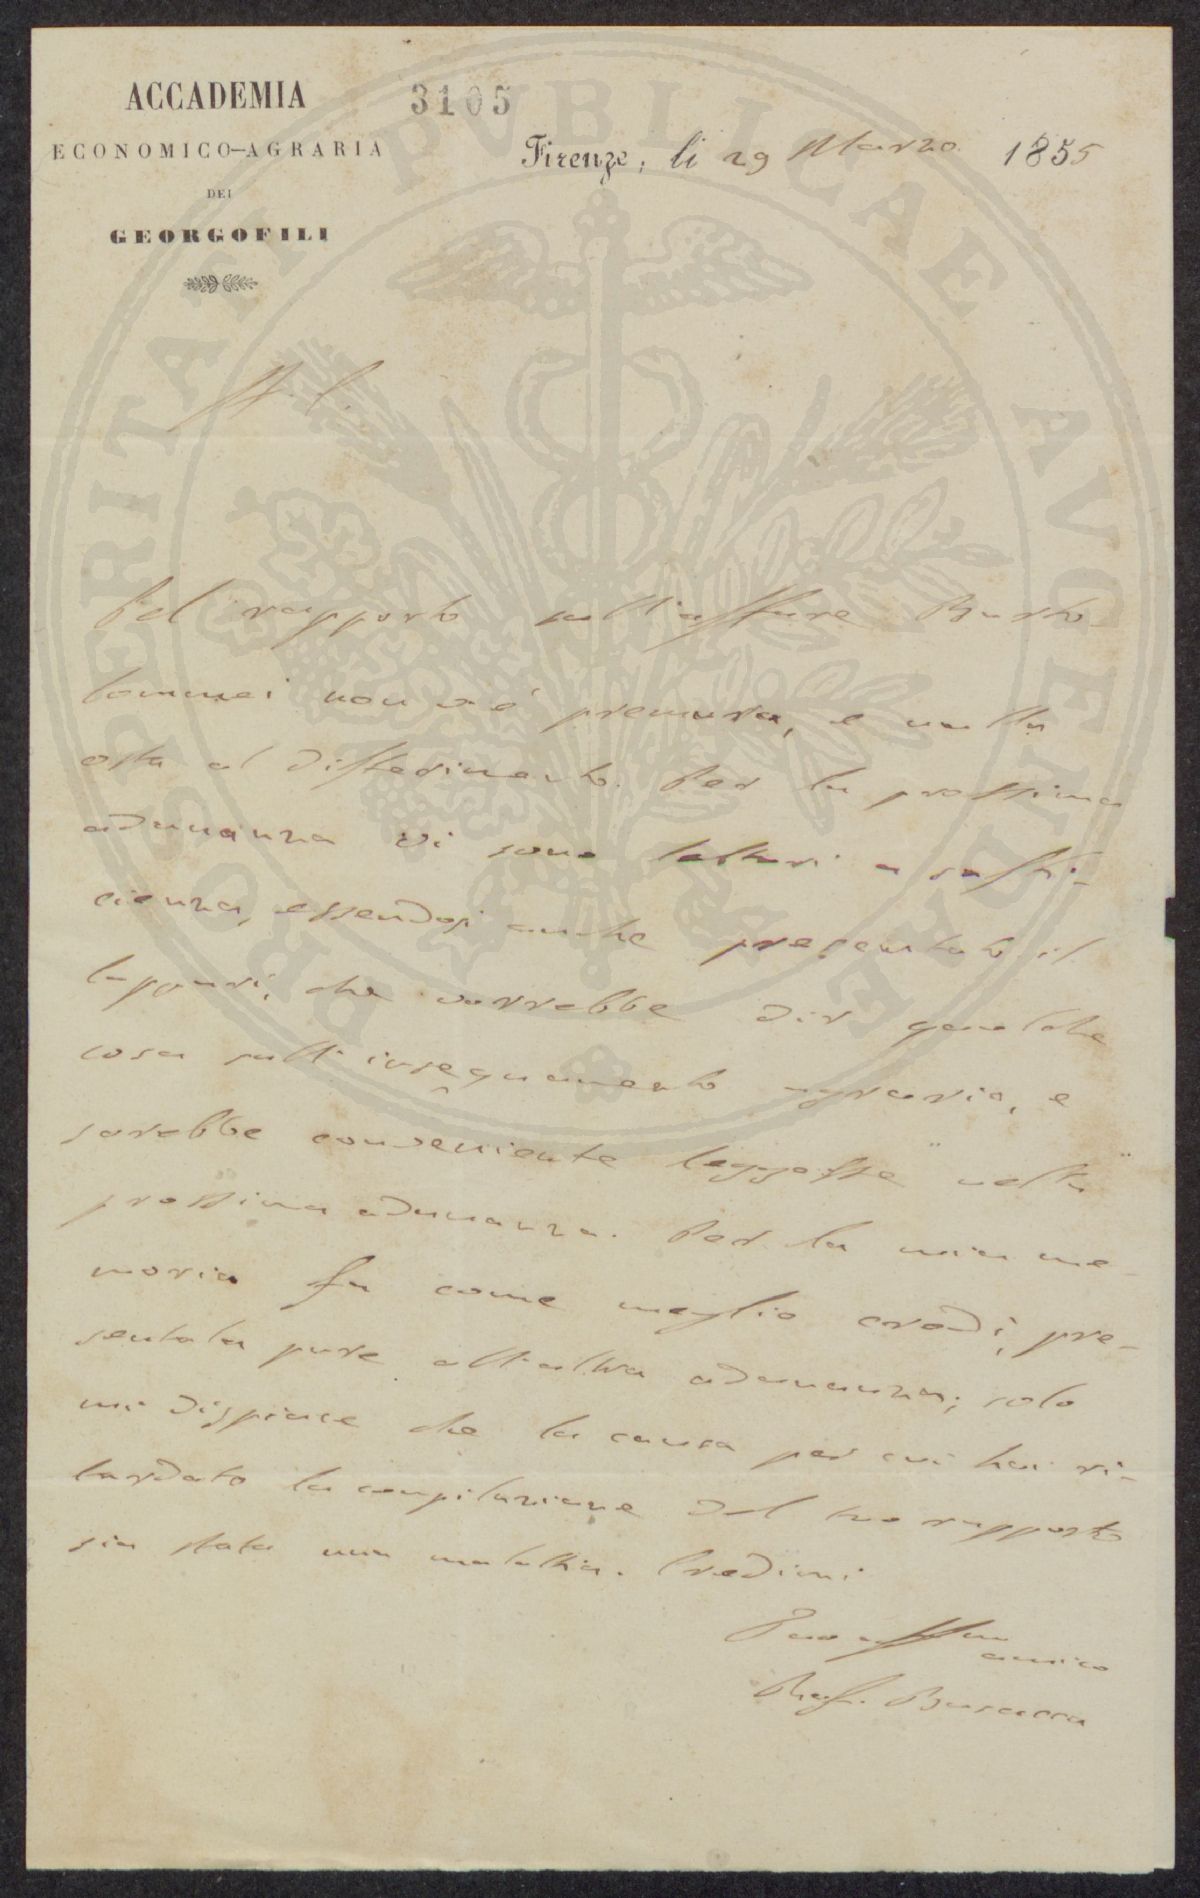 ACCADEMIA
ECONOMICO-AGRARIA
DEI
GEORGOFILI
3105
Firenze, li 29 Marzo 1855
A. C.
Pel rapporto sull'affare Barto-
lommei non v'è premura, e nulla
osta al differimento. Per la prossima
adunanza vi sono lettori a suffi-
cienza, essendosi anche presentato il
che vorrebbe dir qualche
cosa sull'insegnamento agrario, e
sarebbe conveniente leggesse nella
prossima adunanza. Per la mia me-
moria fa come meglio credi, pre-
sentala pure all'altra adunanza; solo
mi dispiace che la causa per cui hai ri-
tardato la compilazione del tuo rapporto
sia stata una malattia. Credimi
Tuo affmo
amico
Raf. Busacca
PROSPERITATI PVBLICAE AVGENDAE